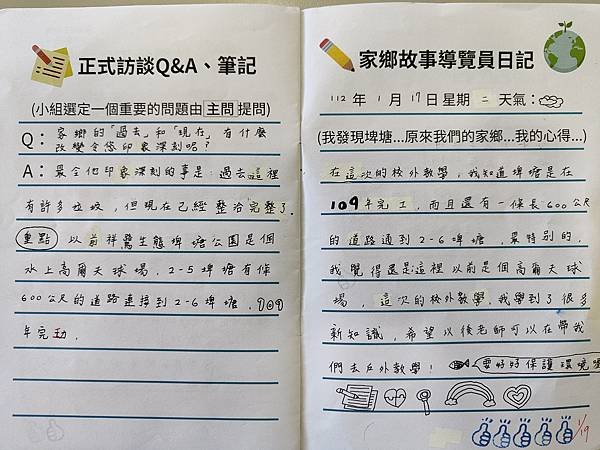 正式訪談Q&A、筆記
(小組選定一個重要的問題由主問提問)
Q：家鄉的「過去」和「現在」有什麼
改變令你印象深刻呢？
A：最令他印象深刻的事是：過去這裡
有許多垃圾，但現在已經整治完整了.
重點 以前祥鶯生態埤塘公園是個
水上高爾夫球場，2-5埤塘有條
600公尺的道路連接到2-6埤塘，109
年完功，
家鄉故事導覽員日記
112年1月17日星期二天氣：
(我發現埤塘...原來我們的家鄉...我的心得...)
在這次的校外教學，我知道埤塘是在
109年完工，而且還有一條長600公尺
的道路通到2-6埤塘，最特別的，
我覺得還是這裡以前是個高爾夫球
場，這次的校外教學，我學到了很多
新知識，希望以後老師可以在帶我
們去戶外教學！要好好保護環境喔
1/19